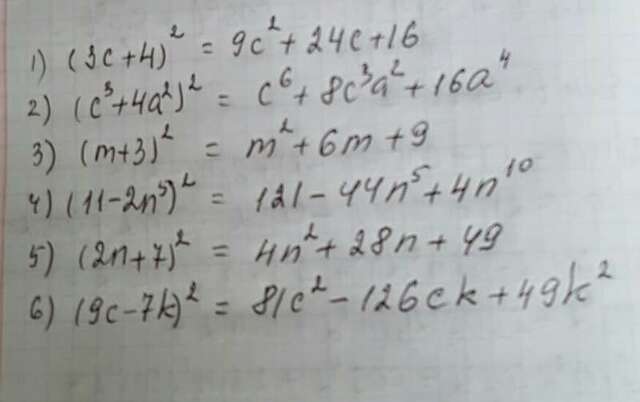 1) (3c+4)² = 9c²+24c+16
2) (c³+4a²)² = c⁶+8c³a²+16a⁴
3) (m+3)² = m²+6m+9
4) (11-2n⁵)² = 121-44n⁵+4n¹⁰
5) (2n+7)² = 4n²+28n+49
6) (9c-7k)² = 81c²-126ck+49k²